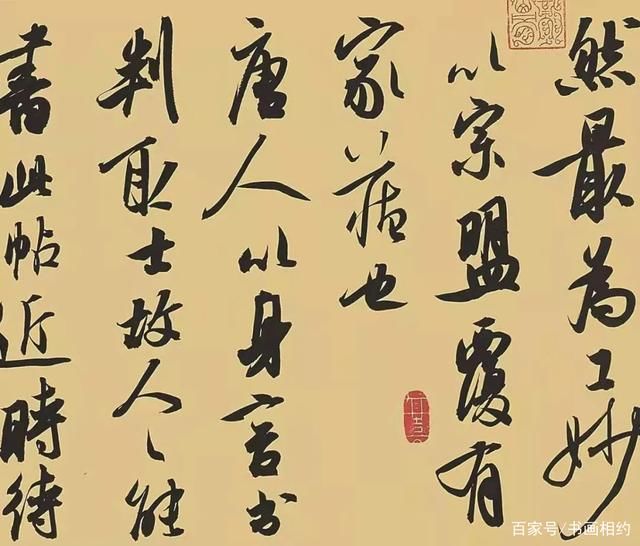 然最為工妙
以宗盟覆有
家也
唐人以身言书
判取士故人人能
書此帖近時待
百家号/书画相约